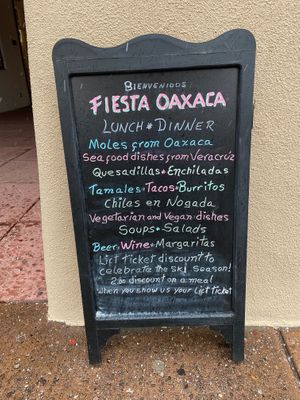 Bienvenidos
FIESTA OAXACA
LUNCH * DINNER
Moles from Oaxaca
Seafood dishes from Veracruz
Quesadillas * Enchiladas
Tamales * Tacos * Burritos
Chiles en Nogada
Vegetarian and Vegan dishes
Soups * Salads
Beer * Wine * Margaritas
Lift ticket discount to
celebrate the ski season!
2.00 discount on a meal
when you show us your lift ticket